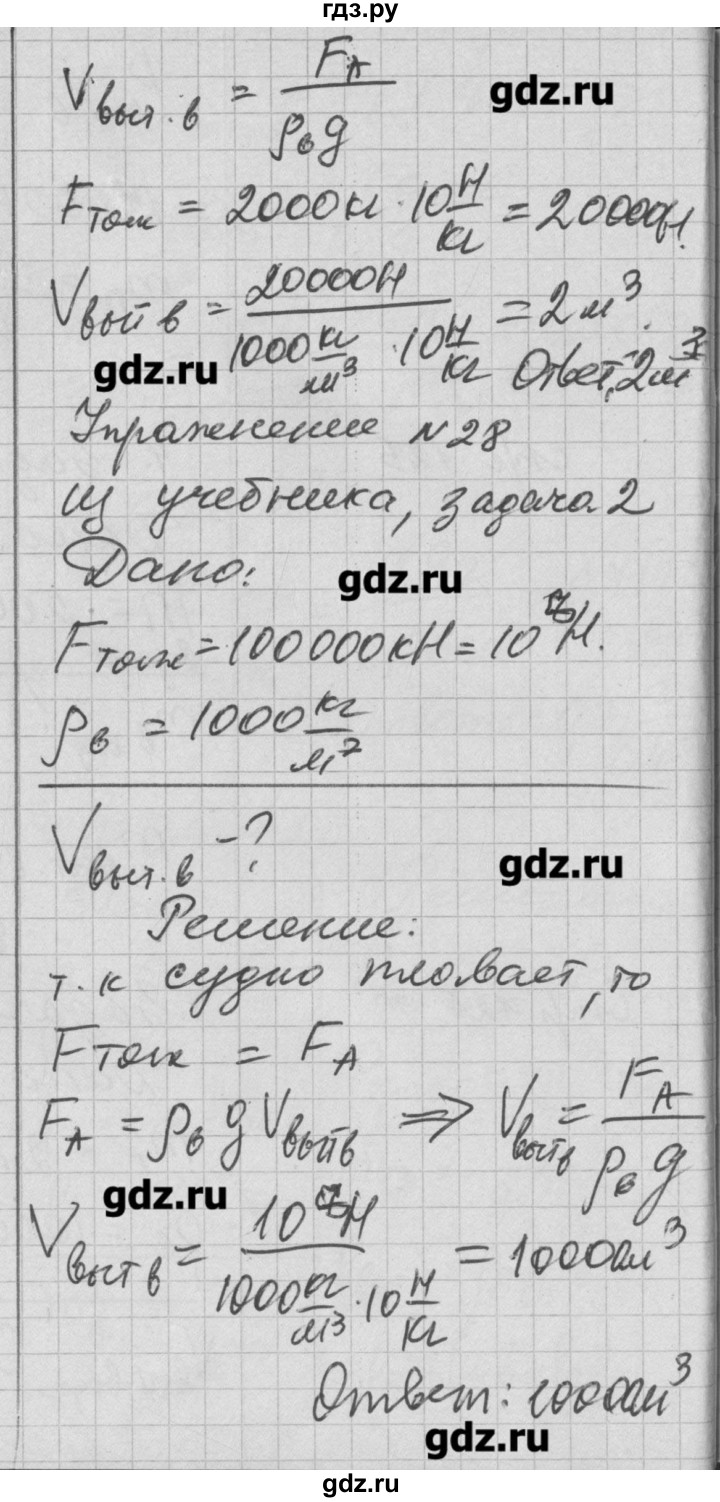 гдз.ру
V выт. в = F_A / ρ_в g
gdz.ru
F тяж = 2000 кг · 10 Н/кг = 20000 Н.
V выт в = 20000Н / (1000 кг/м³ · 10 Н/кг) = 2 м³.
gdz.ru
Ответ: 2м³
Упражнение №28
из учебника, задача 2
Дано:
gdz.ru
F тяж = 100 000 кН = 10⁸ Н.
ρ_в = 1000 кг/м²
V выт. в - ?
gdz.ru
Решение:
т. к судно плавает, то
F тяж = F_A
F_A = ρ_в g V выт в ⇒ V выт в = F_A / ρ_в g
gdz.ru
V выт в = 10⁸ Н / (1000 кг/м³ · 10 Н/кг) = 10000 м³
Ответ: 10000 м³
gdz.ru
gdz.ru